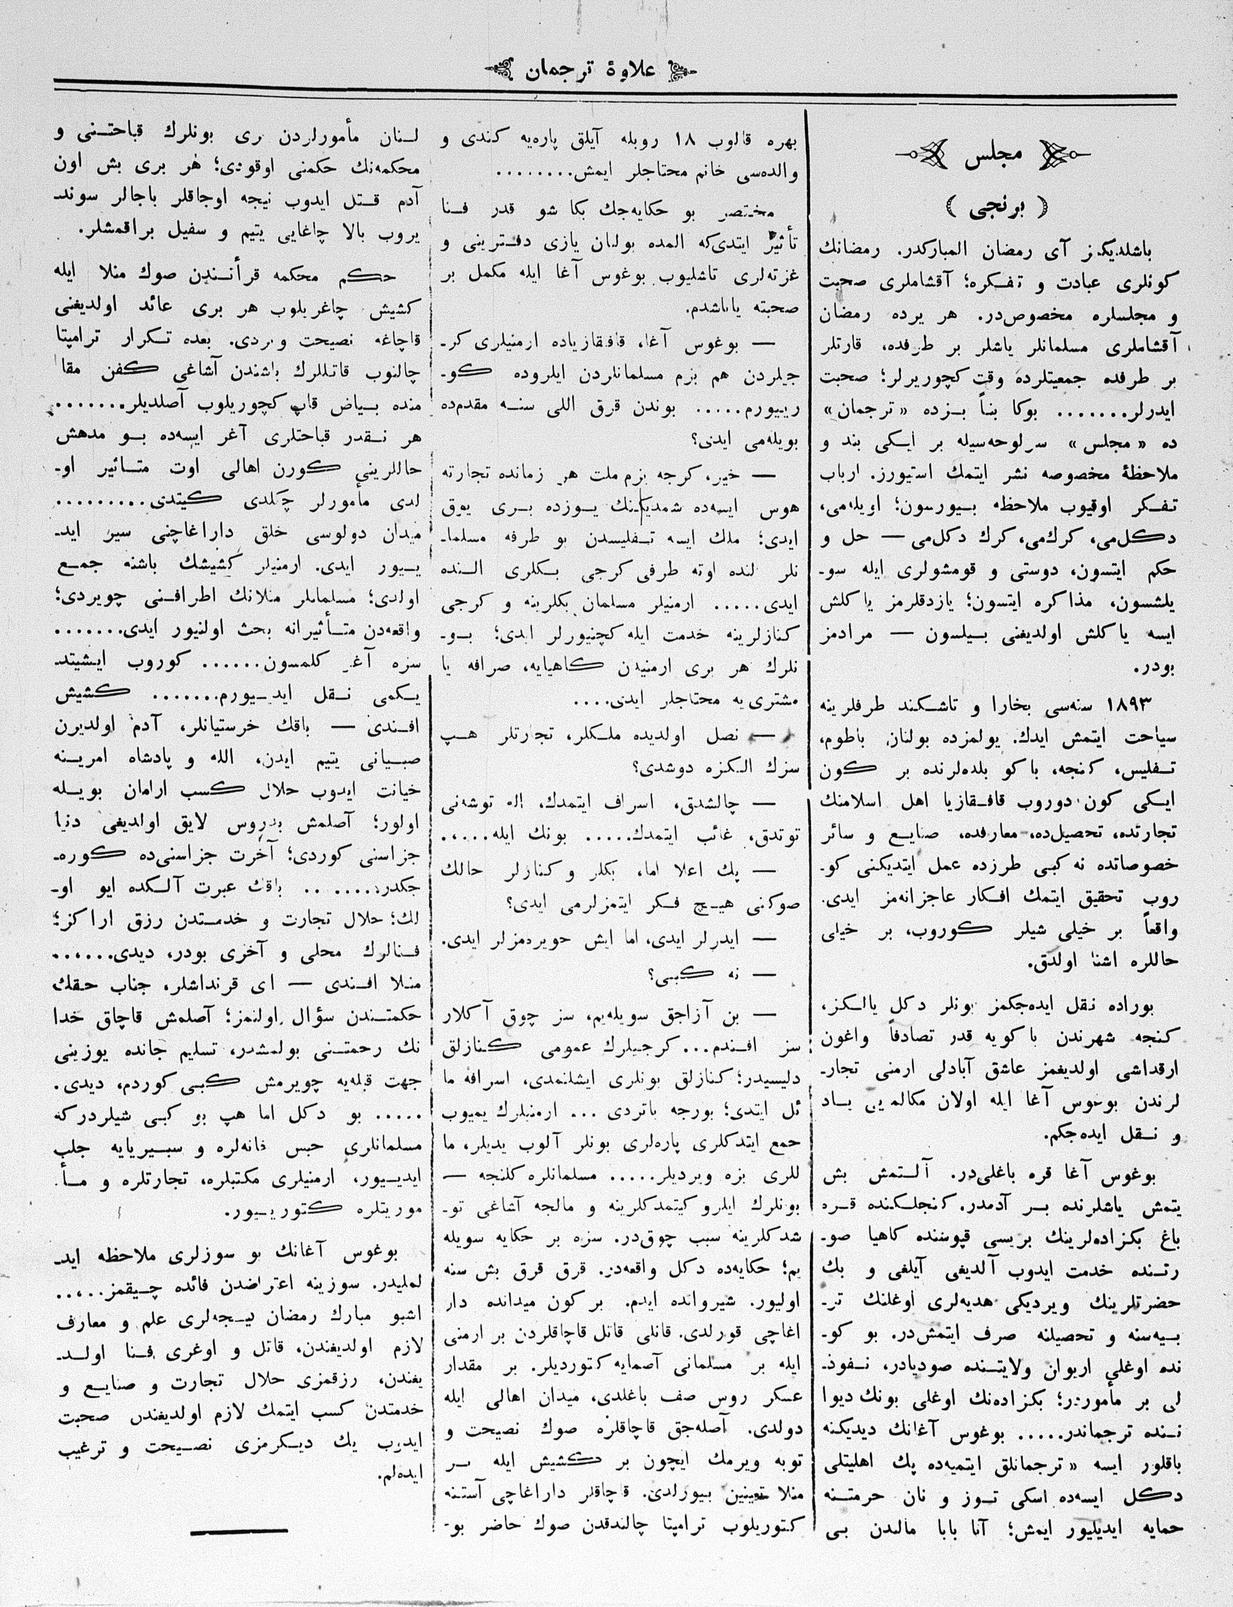 علاوۀ ترجمان
مجلس
( برنجی )
باشلدیکز آی رمضان المبارکدر. رمضانك
کونلری عبادت و تفکره؛ آقشاملری صحبت
و مجلسلره مخصوص‌در. هر یرده رمضان
آقشاملری مسلمانلر یاشلر بر طرفده، قارتلر
بر طرفده جمعیتلرده وقت کچوریرلر؛ صحبت
ایدرلر....... بوکا بناً بزده «ترجمان»
ده «مجلس» سرلوحه‌سیله بر ایکی بند و
ملاحظۀ مخصوصه نشر ایتمك استیورز. ارباب
تفکر اوقیوب ملاحظه بیورسون؛ اویله‌می،
دکل‌می، کرك‌می، کرك دکل‌می — حل و
حکم ایتسون، دوستی و قومشولری ایله سو-
یلشسون، مذاکره ایتسون؛ یازدقلرمز یاکلش
ایسه یاکلش اولدیغنی بیلسون — مرادمز
بودر.
۱۸۹۳ سنه‌سی بخارا و تاشکند طرفلرینه
سیاحت ایتمش ایدك. یولمزده بولنان باطوم،
تفلیس، کنجه، باکو بلده‌لرنده بر کون
ایکی کون دوروب قافقازیا اهل اسلامنك
تجارتده، تحصیل‌ده، معارفده، صنایع و سائر
خصوصاتده نه کبی طرزده عمل ایتدیکنی کو-
روب تحقیق ایتمك افکار عاجزانه‌مز ایدی.
واقعاً بر خیلی شیلر کوروب، بر خیلی
حاللره اشنا اولدق.
بوراده نقل ایده‌جکمز بونلر دکل یالکز،
کنجه شهرندن باکویه قدر تصادفاً واغون
ارقداشی اولدیغمز عاشق آبادلی ارمنی تجار-
لرندن بوغوس آغا ایله اولان مکالمه‌یی یاد
و نقل ایده‌جکم.
بوغوس آغا قره باغلی‌در. آلتمش بش
یتمش یاشلرنده بر آدمدر. کنجلکنده قره
باغ بکزاده‌لرینك بریسی قپوسنده کاهیا صو-
رتنده خدمت ایدوب آلدیغی آیلغی و بك
حضرتلرینك ویردیکی هدیه‌لری اوغلنك تر-
بیه‌سنه و تحصیلنه صرف ایتمش‌در. بو کو-
نده اوغلی اریوان ولایتنده صودیادر، نفوذ-
لی بر مأموردر؛ بکزاده‌نك اوغلی بونك دیوا
ننده ترجماندر..... بوغوس آغانك دیدیکنه
باقلور ایسه « ترجمانلق ایتمیه‌ده پك اهلیتلی
دکل ایسه‌ده اسکی توز و نان حرمتنه
حمایه ایدیلیور ایمش؛ آنا بابا مالندن بی
بهره قالوب ۱۸ روبله آیلق پاره‌یه کندی و
والده‌سی خانم محتاجلر ایمش........
مختصر بو حکایه‌جك بکا شو قدر فنا
تأثیر ایتدی‌که المده بولنان یازی دفترینی و
غزته‌لری تاشلیوب بوغوس آغا ایله مکمل بر
صحبته یاناشدم.
— بوغوس آغا، قافقازیاده ارمنیلری کر-
جیلردن هم بزم مسلمانلردن ایلروده کو-
رییورم..... بوندن قرق اللی سنه مقدم‌ده
بویله‌می ایدی؟
— خیر، کرچه بزم ملت هر زمانده تجارته
هوس ایسه‌ده شمدیکنك یوزده بری یوق
ایدی؛ ملك ایسه تفلیسدن بو طرفه مسلما-
نلر النده اوته طرفی کرجی بکلری النده
ایدی..... ارمنیلر مسلمان بکلرینه و کرجی
کنازلرینه خدمت ایله کچنیورلر ایدی؛ بو-
نلرك هر بری ارمنیدن کاهیایه، صرافه یا
مشتری‌یه محتاجلر ایدی....
— نصل اولدیده ملکلر، تجارتلر هپ
سزك الکزه دوشدی؟
— چالشدق، اسراف ایتمدك، اله توشه‌نی
توتدق، غائب ایتمدك..... بونك ایله.....
— پك اعلا اما، بکلر و کنازلر حالك
صوکنی هیچ فکر ایتمزلرمی ایدی؟
— ایدرلر ایدی، اما ایش حویره‌مزلر ایدی.
— نه کبی؟
— بن آزاجق سویله‌یم، سز چوق آکلار
سز افندم... کرجیلرك عمومی کنازلق
دلیسیدر؛ کنازلق بونلری ایشلتمدی، اسرافه ما
ئل ایتدی؛ بورجه باتردی ... ارمنیلرك یمیوب
جمع ایتدکلری پاره‌لری بونلر آلوب یدیلر، ما
للری بزه ویردیلر..... مسلمانلره کلنجه —
بونلرك ایلرو کیتمدکلرینه و مالجه آشاغی تو-
شدکلرینه سبب چوق‌در. سزه بر حکایه سویله
یم؛ حکایه‌ده دکل واقعه‌در. قرق قرق بش سنه
اولیور. شیروانده ایدم. بر کون میدانده دار
اغاچی قورلدی. قانلی قاتل قاچاقلردن بر ارمنی
ایله بر مسلمانی آصمایه کتوردیلر. بر مقدار
عسکر روس صف باغلدی، میدان اهالی ایله
دولدی. آصله‌جق قاچاقلره صوك نصیحت و
توبه ویرمك ایچون بر کشیش ایله بر
منلا تعیین بیورلدی. قاچاقلر داراغاچی آستنه
کتوریلوب ترامپتا چالندقدن صوك حاضر بو-
لنان مأمورلردن بری بونلرك قباحتنی و
محکمه‌نك حکمنی اوقودی؛ هر بری بش اون
آدم قتل ایدوب نیجه اوجاقلر باجالر سوند
یروب بالا چاغایی یتیم و سفیل براقمشلر.
حکم محکمه قرأتندن صوك منلا ایله
کشیش چاغریلوب هر بری عائد اولدیغی
قاچاغه نصیحت ویردی. بعده تکرار ترامپتا
چالنوب قاتللرك باشندن آشاغی کفن مقا
منده بیاض قاپ کچوریلوب آصلدیلر.......
هر نقدر قباحتلری آغر ایسه‌ده بو مدهش
حاللرینی کورن اهالی اوت متأثیر او-
لدی مأمورلر چکلدی کیتدی.........
میدان دولوسی خلق داراغاچنی سیر اید-
ییور ایدی. ارمنیلر کشیشك باشنه جمع
اولدی؛ مسلمانلر منلانك اطرافنی چویردی؛
واقعه‌دن متأثیرانه بحث اولنیور ایدی.......
سزه آغر کلمسون...... کوروب ایشیتد
یکمی نقل ایدیورم....... کشیش
افندی — باقك خرستیانلر، آدم اولدیرن
صبیانی یتیم ایدن، الله و پادشاه امرینه
خیانت ایدوب حلال کسب ارامان بویله
اولور؛ آصلمش بدروس لایق اولدیغی دنیا
جزاسنی کوردی؛ آخرت جزاسنی‌ده کوره-
جکدر....... باقك عبرت آلکده ایو او-
لك؛ حلال تجارت و خدمتدن رزق اراکز؛
فنالرك محلی و آخری بودر، دیدی......
منلا افندی — ای قرنداشلر، جناب حقك
حکمتندن سؤال اولنمز؛ آصلمش قاچاق خدا
نك رحمتنی بولمشدر، تسلیم جانده یوزینی
جهت قبله‌یه چویرمش کبی کوردم، دیدی.
..... بو دکل اما هپ بو کبی شیلردرکه
مسلمانلری حبس خانه‌لره و سیبریایه جلب
ایدییور، ارمنیلری مکتبلره، تجارتلره و مأ-
موریتلره کتورییور.
بوغوس آغانك بو سوزلری ملاحظه اید-
لملیدر. سوزینه اعتراضدن فائده چیقمز.....
اشبو مبارك رمضان کیجه‌لری علم و معارف
لازم اولدیغندن، قاتل و اوغری فنا اولد-
یغندن، رزقمزی حلال تجارت و صنایع و
خدمتدن کسب ایتمك لازم اولدیغندن صحبت
ایدرب یك دیکرمزی نصیحت و ترغیب
ایده‌لم.